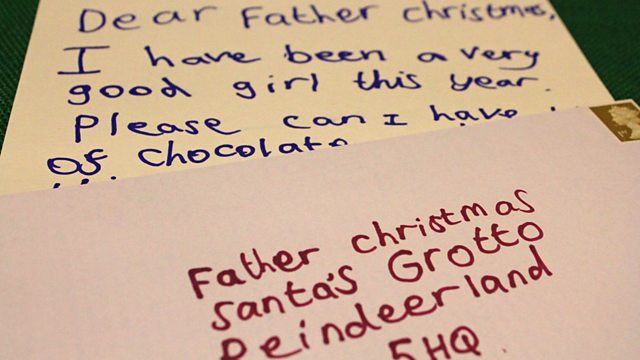 Dear Father Christmas,
I have been a very
good girl this year.
Please can I have
of chocolate
Father christmas
Santa's Grotto
Reindeerland
5HQ